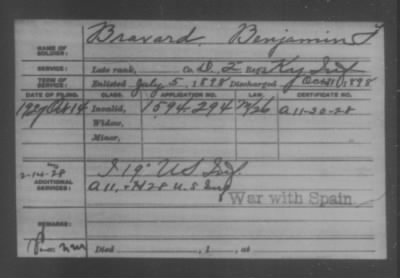 NAME OF SOLDIER: Bravard, Benjamin F
SERVICE: Late rank, Co. D, 2 Reg't Ky Inf
TERM OF SERVICE: Enlisted July 5, 1898 Discharged Oct 31, 1898
DATE OF FILING. CLASS. APPLICATION NO. LAW. CERTIFICATE NO.
1927 Oct 14 Invalid, 1594.294 A 11-30-28
Widow,
Minor,
2-14-28 I 19" US Inf.
ADDITIONAL SERVICES: A 11, + H 28 U.S. Inf
War with Spain
REMARKS:
Died , 1 , at